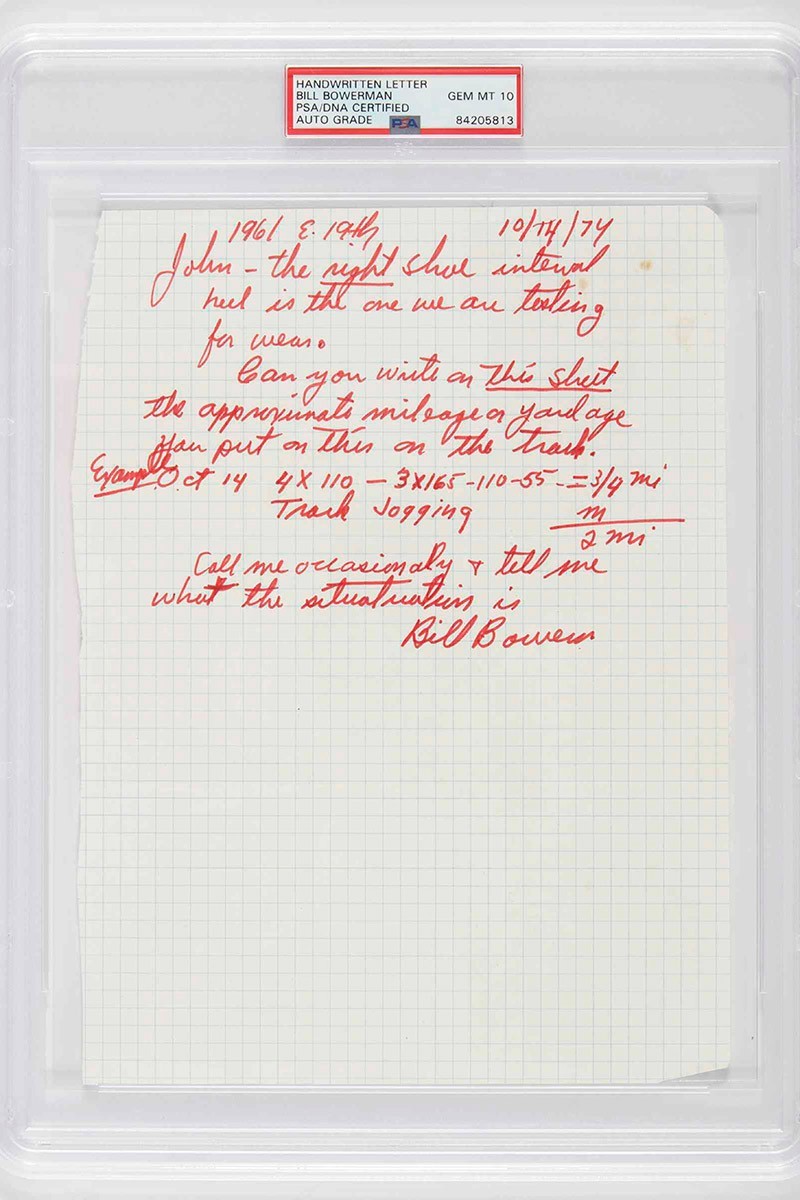 HANDWRITTEN LETTER
BILL BOWERMAN GEM MT 10
PSA/DNA CERTIFIED
AUTO GRADE PSA 84205813
1961 E. 19th 10/14/74
John – the right shoe interval
heel is the one we are testing
for wear.
Can you write on this sheet
the approximate mileage or yardage
you put on this on the track.
Example Oct 14 4 X 110 – 3X165-110-55-=3/4 mi
Track Jogging m
2 mi
Call me occasionaly & tell me
what the situatuation is
Bill Bowerm